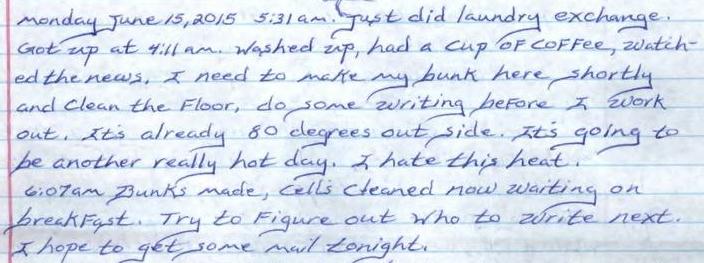 monday June 15, 2015 5:31 am. Just did laundry exchange.
Got up at 4:11 am. Washed up, had a cup of coffee, watch-
ed the news. I need to make my bunk here shortly
and clean the floor, do some writing before I work
out. It's already 80 degrees out side. It's going to
be another really hot day. I hate this heat.
6:07am Bunks made, cell's cleaned now waiting on
breakfast. Try to figure out who to write next.
I hope to get some mail tonight.